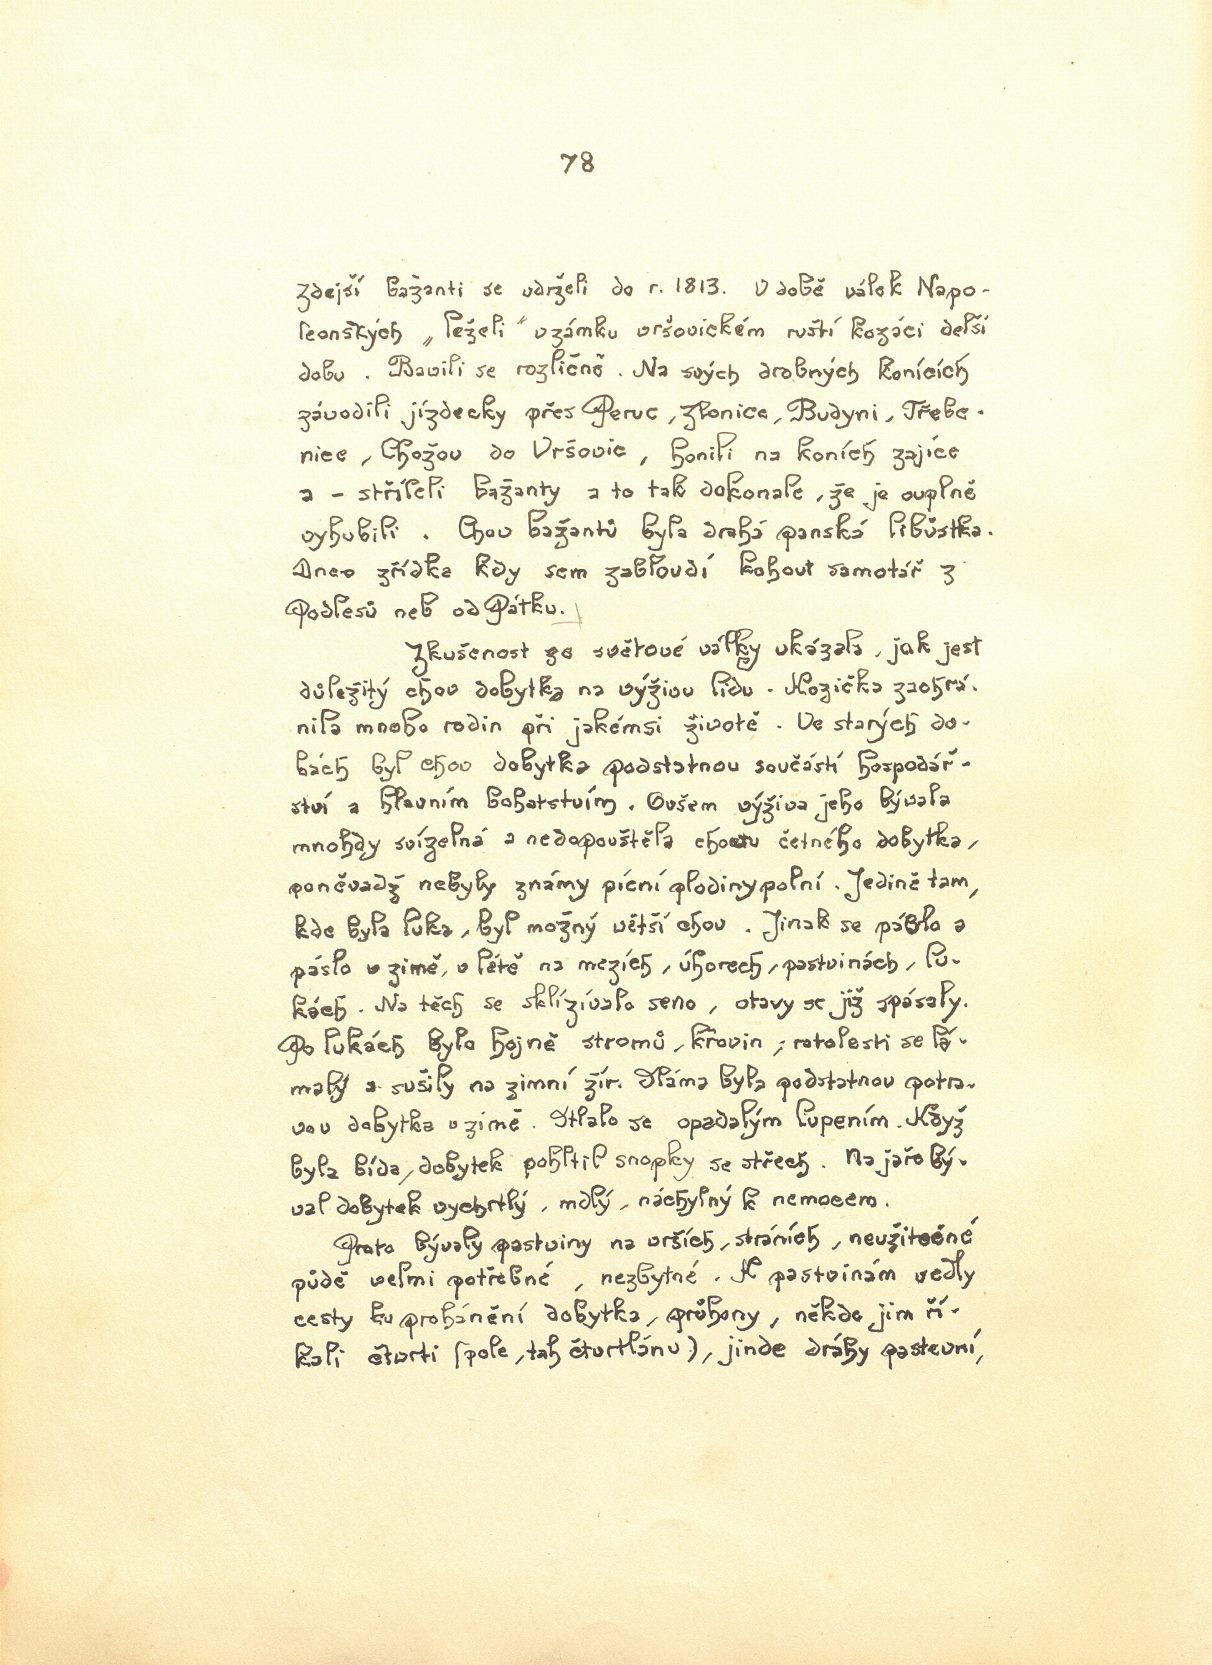 78
zdejší bažanti se udrželi do r. 1813. V době válek Napo-
leonských „leželi“ v zámku vršovickém ruští kozáci delší
dobu. Bavili se rozličně. Na svých drobných konících
závodili jízdecky přes Peruc, Zlonice, Budyni, Třebe-
nice, Chožov do Vršovic, honili na koních zajíce
a - stříleli bažanty a to tak dokonale, že je ouplně
vyhubili. Chov bažantů byla drahá panská libůstka.
Dnes zřídka kdy sem zabloudí kohout samotář z
Podlesů neb od Pátku.
Zkušenost ze světové války ukázala, jak jest
důležitý chov dobytka na výživu lidu. Kozička zachrá-
nila mnoho rodin při jakémsi životě. Ve starých do-
bách byl chov dobytka podstatnou součástí hospodář-
ství a hlavním bohatstvím. Ovšem výživa jeho bývala
mnohdy svízelná a nedopouštěla chovu četného dobytka,
poněvadž nebyly známy pícní plodiny polní. Jedině tam,
kde byla luka, byl možný větší chov. Jinak se páslo a
páslo v zimě, v létě na mezích, úhorech, pastvinách, lu-
kách. Na těch se sklízívalo seno, otavy se již spásaly.
Po lukách bylo hojně stromů, křovin; ratolesti se lá-
maly a sušily na zimní žír. Sláma byla podstatnou potra-
vou dobytka v zimě. Stlalo se opadalým lupením. Když
byla bída, dobytek pohltil snopky se střech. Na jaře bý-
val dobytek vychrtlý, mdlý, náchylný k nemocem.
Proto bývaly pastviny na vrších, stráních, neužitečné
půdě velmi potřebné, nezbytné. K pastvinám vedly
cesty ku prohánění dobytka, průhony, někde jim ří-
kali čtvrti (pole, tah čtvrtlánu), jinde dráhy pastevní,